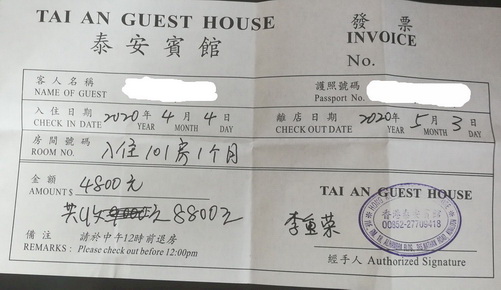 TAI AN GUEST HOUSE 發 票
泰安賓館 INVOICE
No.
客人名稱 護照號碼
NAME OF GUEST Passport No.
入住日期 2020年 4月 4日 離店日期 2020年 5月 3日
CHECK IN DATE YEAR MONTH DAY CHECK OUT DATE YEAR MONTH DAY
房間號碼 入住 101房1个月
ROOM NO.
金額 4800元
AMOUNT $
TAI AN GUEST HOUSE
8800元
香港泰安賓館
00852-27709418
李重荣
備注 請於中午12時前退房
REMARKS : Please check out before 12:00pm
經手人 Authorized Signature